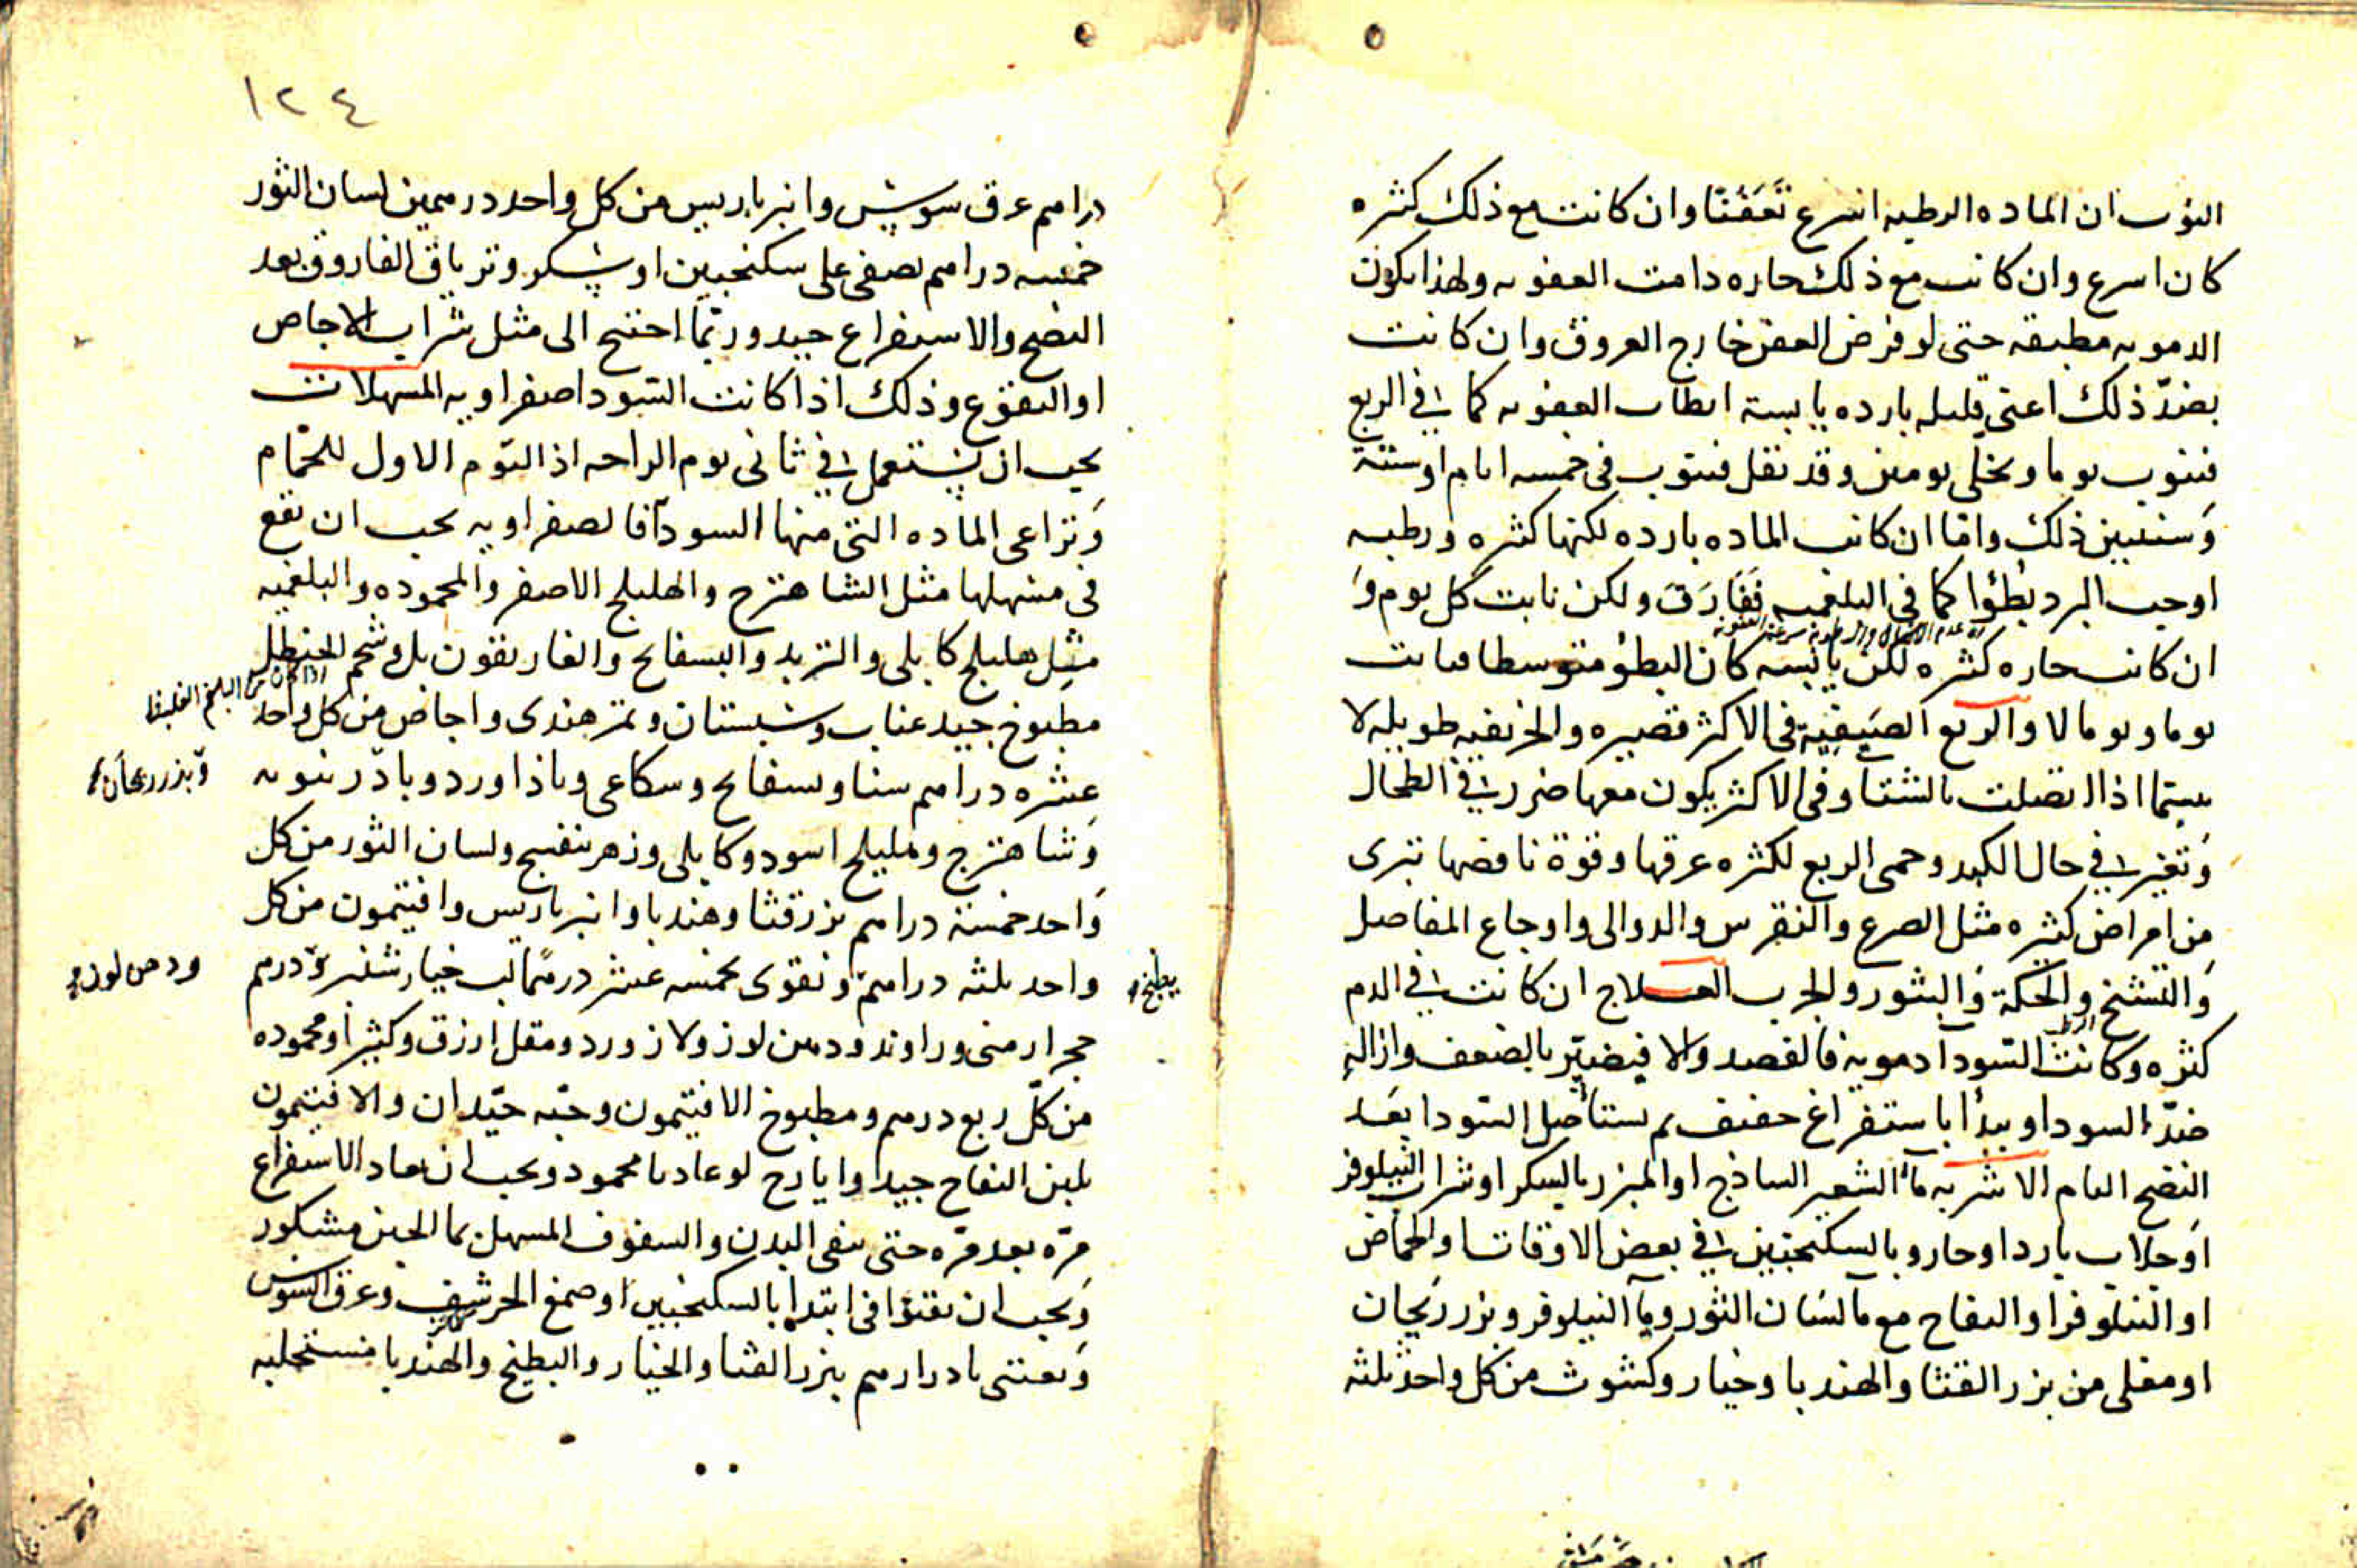 النوب ان الماده الرطبه اسرع تعفنا وان كانت مع ذلك كثره
كان اسرع وان كانت مع ذلك حاره دامت العفونه ولهذا يكون
الدمويه مطبقه حتى لو فرض العفن خارج العروق وان كانت
بضد ذلك اعنى قليله بارده يابسة ابطات العفونه كما في الربع
فتنوب يوما ويخلى يومين وقد تقل فتنوب في خمسه ايام او ستة
وسنبين ذلك واما ان كانت الماده بارده لكنها كثره ورطبه
اوجب البرد بطؤا كما في البلغميه تفارق ولكن نابت كل يوم و
ان كانت حاره كثره لكن يابسه كان البطؤ متوسطا فنابت
يوما ويوما لا والربع الصيفية في الاكثر قصيره والخريفيه طويله لا
سيما اذا اتصلت بالشتا وفي الاكثر يكون معها ضرر في الطحال
وتغير في حال الكبد وحمى الربع لكثره عرقها وقوة نافضها تبرى
من امراض كثيره مثل الصرع والنقرس والدوالى واوجاع المفاصل
والتشنج والحكة والبثور والجرب العلاج ان كانت في الدم
كثره وكانت السودا دمويه فالفصد والا فيضر بالضعف وازاله
ضد السودا ويبدأ باستفراغ خفيف ثم يستأصل السودا بعد
النضج التام الاشربه مآ الشعير الساذج او المبزر بالسكر او شراب النيلوفر
او جلاب بارد او حار وبالسكنجبين في بعض الاوقات والحماض
او النيلوفر او التفاح مع مآ لسان الثور ومآ النيلوفر وبزر ريحان
او مغلى من بزر القثا والهندبا وخيار وكشوث من كل واحد ثلثه
١٢٤
دراهم عرق سوس وانبرباريس من كل واحد درهمين لسان الثور
خمسه دراهم يصفى على سكنجبين او سكر وترياق الفاروق بعد
النضج والاستفراغ جيد وربما احتيج الى مثل شراب الاجاص
او النقوع وذلك اذا كانت السودا صفراويه المسهلات
يجب ان يستعمل في ثاني يوم الراحه اذ اليوم الاول للحمام
وتراعى الماده التي منها السودآ فالصفراويه يجب ان يقع
في مسهلها مثل الشاهترج والهليلج الاصفر والمحموده والبلغميه
مثل هليلج كابلى والتربد والبسفايج والغاريقون بل وشحم الحنظل
اذا كان من البلغم الغليظ
مطبوخ جيد عناب وسبستان وتمر هندى واجاص من كل واحد
عشره دراهم سنا وبسفايج وشكاعى وباذاورد وباذرنبويه
وبزر ريحان
وشاهترج وهليلج اسود وكابلى وزهر بنفسج ولسان الثور من كل
واحد خمسة دراهم بزر قثا وهندبا وانبرباريس وافتيمون من كل
واحد ثلثه دراهم ويقوى بخمسه عشر درهما لب خيار شنبر ودرهم
يطبخ
ودهن لوز
حجر ارمنى وراوند ودهن لوز ولازورد ومقل ازرق وكثيرا ومحموده
من كل ربع درهم ومطبوخ الافتيمون وحبه جيدان والافتيمون
بلبن اللقاح جيد وايارج لوغاديا محمود ويجب ان يعاد الاستفراغ
مره بعد مره حتى ينقى البدن والسفوف المسهل بما الجبن مشكور
ويجب ان يقيؤا في ابتدا بالسكنجبين او صمغ الحرشف وعرق السوس
ويعتنى بادرارهم ببزر القثا والخيار والبطيخ والهندبا مستحلبه